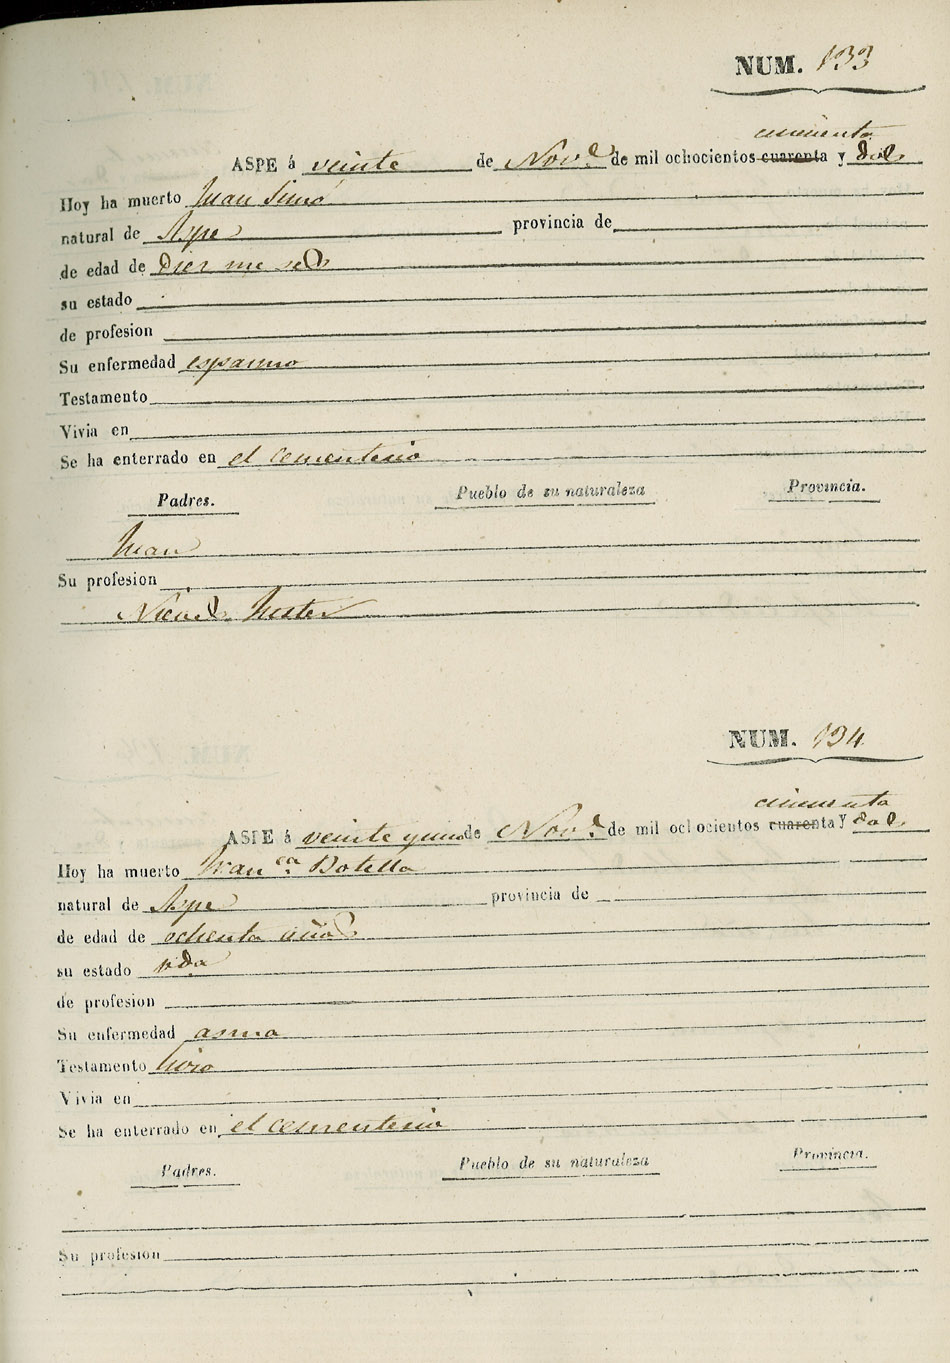 NUM. 133
cincuenta
ASPE á veinte de Nov.e de mil ochocientos cuarenta y dos
Hoy ha muerto Juan Simó
natural de Aspe provincia de
de edad de diez meses
su estado
de profesion
Su enfermedad espasmo
Testamento
Vivia en
Se ha enterrado en el cementerio
Padres. Pueblo de su naturaleza Provincia.
Juan
Su profesion
NUM. 134
cincuenta
ASPE á veinte y uno de Nov.e de mil ochocientos cuarenta y dos
Hoy ha muerto Fran.ca Botella
natural de Aspe provincia de
de edad de ochenta años
su estado vda
de profesion
Su enfermedad asma
Testamento hizo
Vivia en
Se ha enterrado en el cementerio
Padres. Pueblo de su naturaleza Provincia.
Su profesion